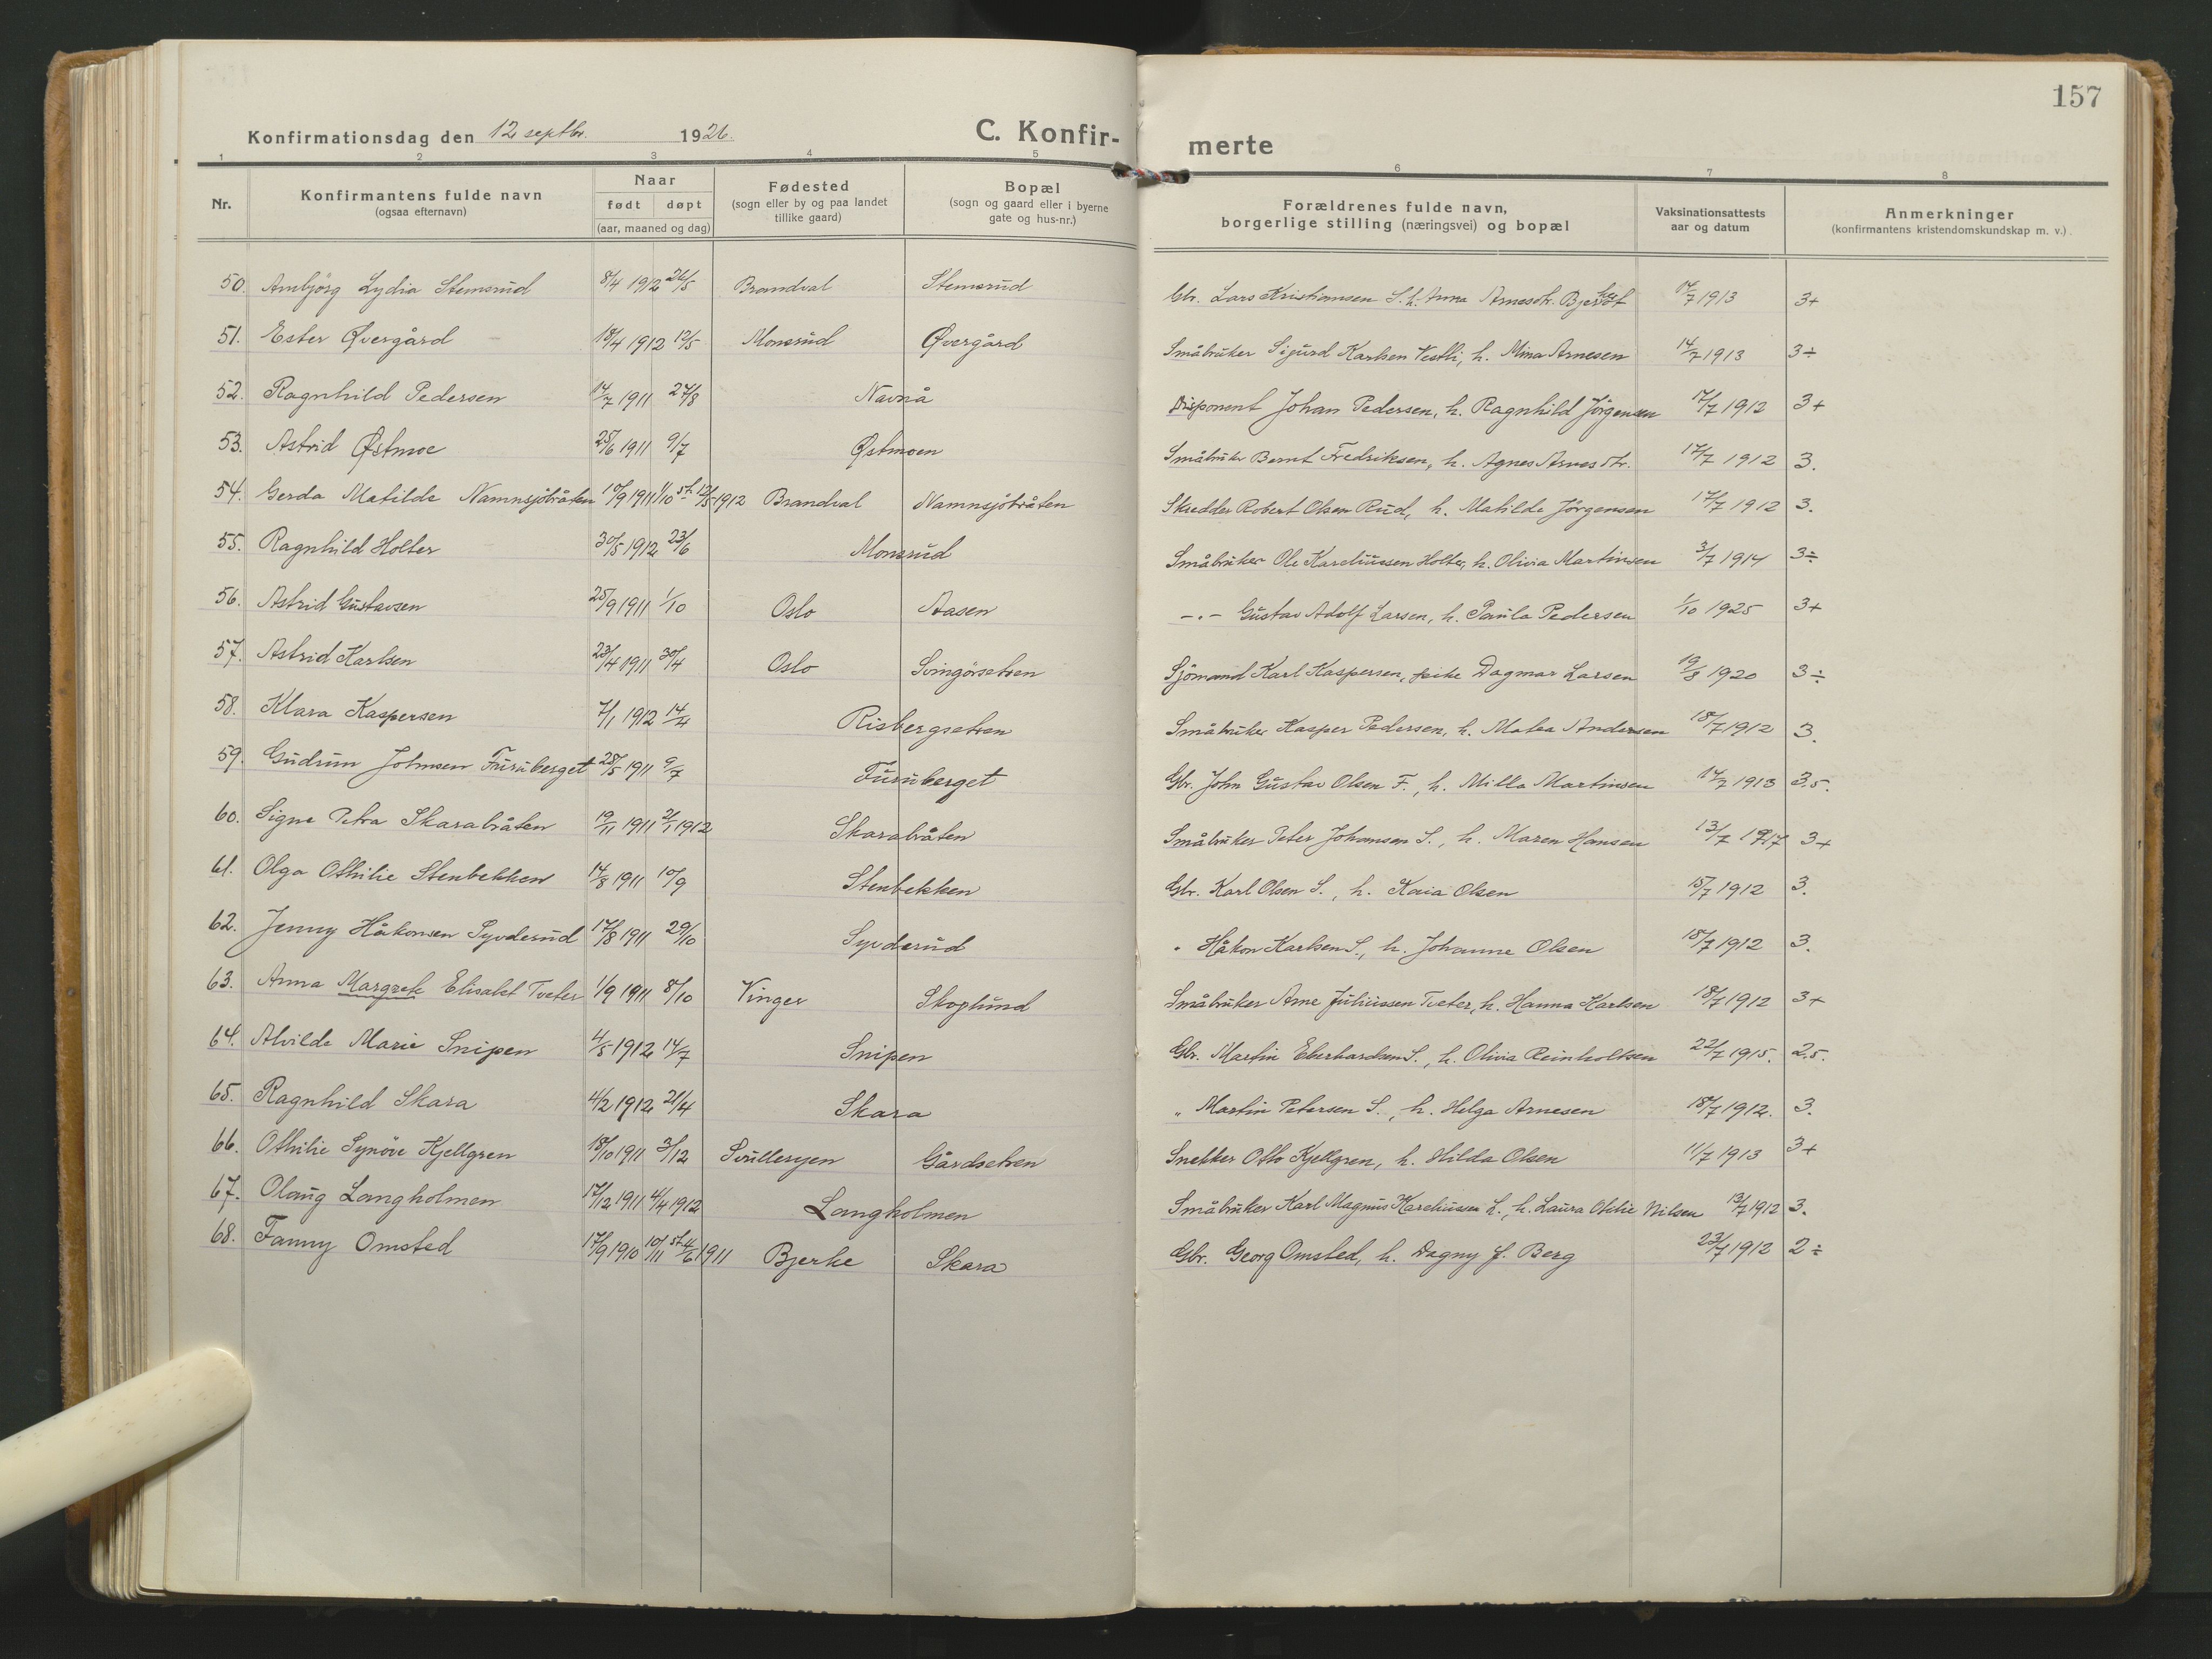 157
Konfirmationsdag den 12 septbr. 1926. C. Konfir- merte
1 2 3 4 5 6 7 8
Nr. Konfirmantens fulde navn (ogsaa efternavn) Naar født døpt (aar, maaned og dag) Fødested (sogn eller by og paa landet tillike gaard) Bopæl (sogn og gaard eller i byerne gate og hus-nr.) Forældrenes fulde navn, borgerlige stilling (næringsvei) og bopæl Vaksinationsattests aar og datum Anmerkninger (konfirmantens kristendomskundskap m. v.).
50. Arnbjörg Lydia Stemsrud 8/4 1912 26/5 Brandval Stemsrud Gbr. Lars Kristiansen S. h. Anna Arnesdtr. 14/7 1913 3+
51. Ester Øvergård 18/4 1912 12/5 Monsrud Øvergård Småbruker Sigurd Karlsen Vestli, h. Mina Arnesen 14/7 1913 3÷
52. Ragnhild Pedersen 14/7 1911 27/8 Navnå Disponent Johan Pedersen, h. Ragnhild Jörgensen 17/7 1912 3+
53. Astrid Østmoe 25/6 1911 9/7 Østmoen Småbruker Bernt Fredriksen, h. Agnes Arnesdtr. 17/7 1912 3.
54. Gerda Matilde Namnsjöbråten 10/9 1911 1/10 st. 12/5 1912 Brandval Namnsjöbråten Skredder Robert Olsen Rud, h. Matilde Jörgensen 17/7 1912 3.
55. Ragnhild Holter 30/5 1912 23/6 Monsrud Småbruker Ole Kareliussen Holter, h. Olivia Martinsen 3/7 1914 3÷
56. Astrid Gustavsen 25/9 1911 1/10 Oslo Aasen -.- Gustav Adolf Larsen, h. Paula Pedersen 1/10 1925 3+
57. Astrid Karlsen 23/4 1911 30/4 Oslo Svingörsetren Sjömand Karl Kaspersen, pike Dagmar Larsen 19/8 1920 3÷
58. Klara Kaspersen 7/1 1912 14/4 Risbergsetren Småbruker Kasper Pedersen, h. Malea Andersen 18/7 1912 3.
59. Gudrun Johnsen Furuberget 28/5 1911 9/7 Furuberget Gbr. John Gustav Olsen F., h. Milla Martinsen 14/7 1913 3.5.
60. Signe Petra Skarabråten 19/11 1911 2/1 1912 Skarabråten Småbruker Peter Johansen S., h. Maren Hansen 13/7 1917 3+
61. Olga Othilie Stenbekken 14/8 1911 10/9 Stenbekken Gbr. Karl Olsen S., h. Kaia Olsen 15/7 1912 3.
62. Jenny Håkonsen Syvderud 17/8 1911 29/10 Syvderud " Håkon Karlsen S., h. Johanne Olsen 18/7 1912 3.
63. Anna Margrete Elisabet Tveter 1/9 1911 8/10 Vinger Skoglund Småbruker Arne Juliussen Tveter, h. Hanna Karlsen 18/7 1912 3+
64. Alvilde Marie Snipen 4/5 1912 14/7 Snipen Gbr. Martin Eberhardsen S., h. Olivia Reinholtsen 22/7 1915. 2.5.
65. Ragnhild Skara 4/2 1912 21/4 Skara " Martin Petersen S., h. Helga Arnesen 18/7 1912. 3.
66. Othilie Synöve Kjellgren 18/10 1911 3/12 Svulleryen Gårdsetren Snekker Otto Kjellgren, h. Hilda Olsen 11/7 1913 3+
67. Olaug Langholmen 17/12 1911 4/4 1912 Langholmen Småbruker Karl Magnus Kareliussen L., h. Laura Otilie Nilsen 13/7 1912 3.
68. Fanny Omsted 17/9 1910 10/11 st. 4/6 1911 Bjerke Skara Gbr. Georg Omsted, h. Dagny J. Berg 23/7 1912 2÷